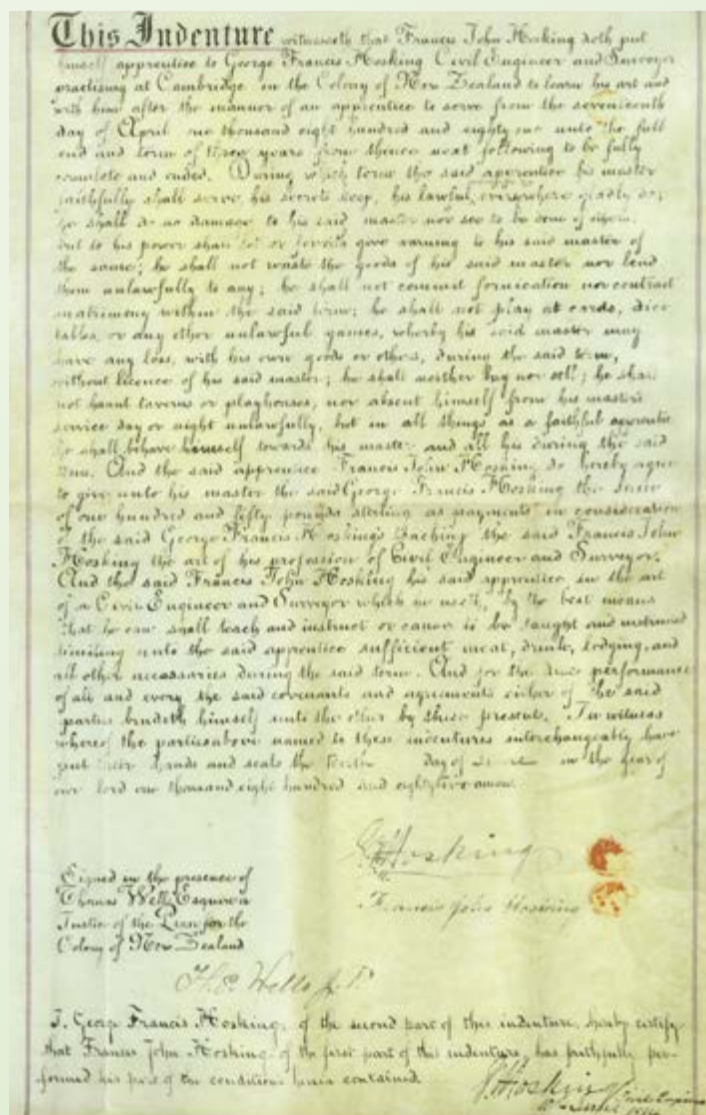 This Indenture witnesseth that Francis John Hosking doth put
himself apprentice to George Francis Hosking Civil Engineer and Surveyor
practising at Cambridge in the Colony of New Zealand to learn his art and
with him after the manner of an apprentice to serve from the seventeenth
day of April one thousand eight hundred and eighty one unto the full
end and term of three years from thence next following to be fully
complete and ended. During which term the said apprentice his master
faithfully shall serve, his secrets keep, his lawful, everywhere gladly do;
he shall do no damage to his said master nor see to be done of others,
but to his power shall let or forthwith give warning to his said master of
the same; he shall not waste the goods of his said master nor lend
them unlawfully to any; he shall not commit fornication nor contract
matrimony within the said term; he shall not play at cards, dice
tables, or any other unlawful games, wherby his said master may
have any loss, with his own goods or others, during the said term,
without licence of his said master; he shall neither buy nor sell; he shall
not haunt taverns or playhouses, nor absent himself from his master's
service day or night unlawfully, but in all things as a faithful apprentice
he shall behave himself towards his master and all his during the said
term. And the said apprentice Francis John Hosking do hereby agree
to give unto his master the said George Francis Hosking the sum
of one hundred and fifty pounds sterling as payments in consideration
of the said George Francis Hosking's teaching the said Francis John
Hosking the art of his profession of Civil Engineer and Surveyor.
And the said Francis John Hosking his said apprentice in the art
of a Civil Engineer and Surveyor which he useth, by the best means
that he can shall teach and instruct or cause to be taught and instructed
finding unto the said apprentice sufficient meat, drink, lodging, and
all other necessaries during the said term. And for the true performance
of all and every the said covenants and agreements either of the said
parties bindeth himself unto the other by these present. In witness
whereof the parties above named to these indentures interchangeably have
put their hands and seals the day of in the year of
our lord one thousand eight hundred and eighty
G F Hosking
Francis John Hosking
Signed in the presence of
Thomas Wells Esquire a
Justice of the Peace for the
Colony of New Zealand
T. E. Wells J.P.
I, George Francis Hosking, of the second part of this indenture, hereby certify
that Francis John Hosking, of the first part of this indenture, has faithfully per-
formed his part of the conditions herein contained.
Hosking
Civil Engineer